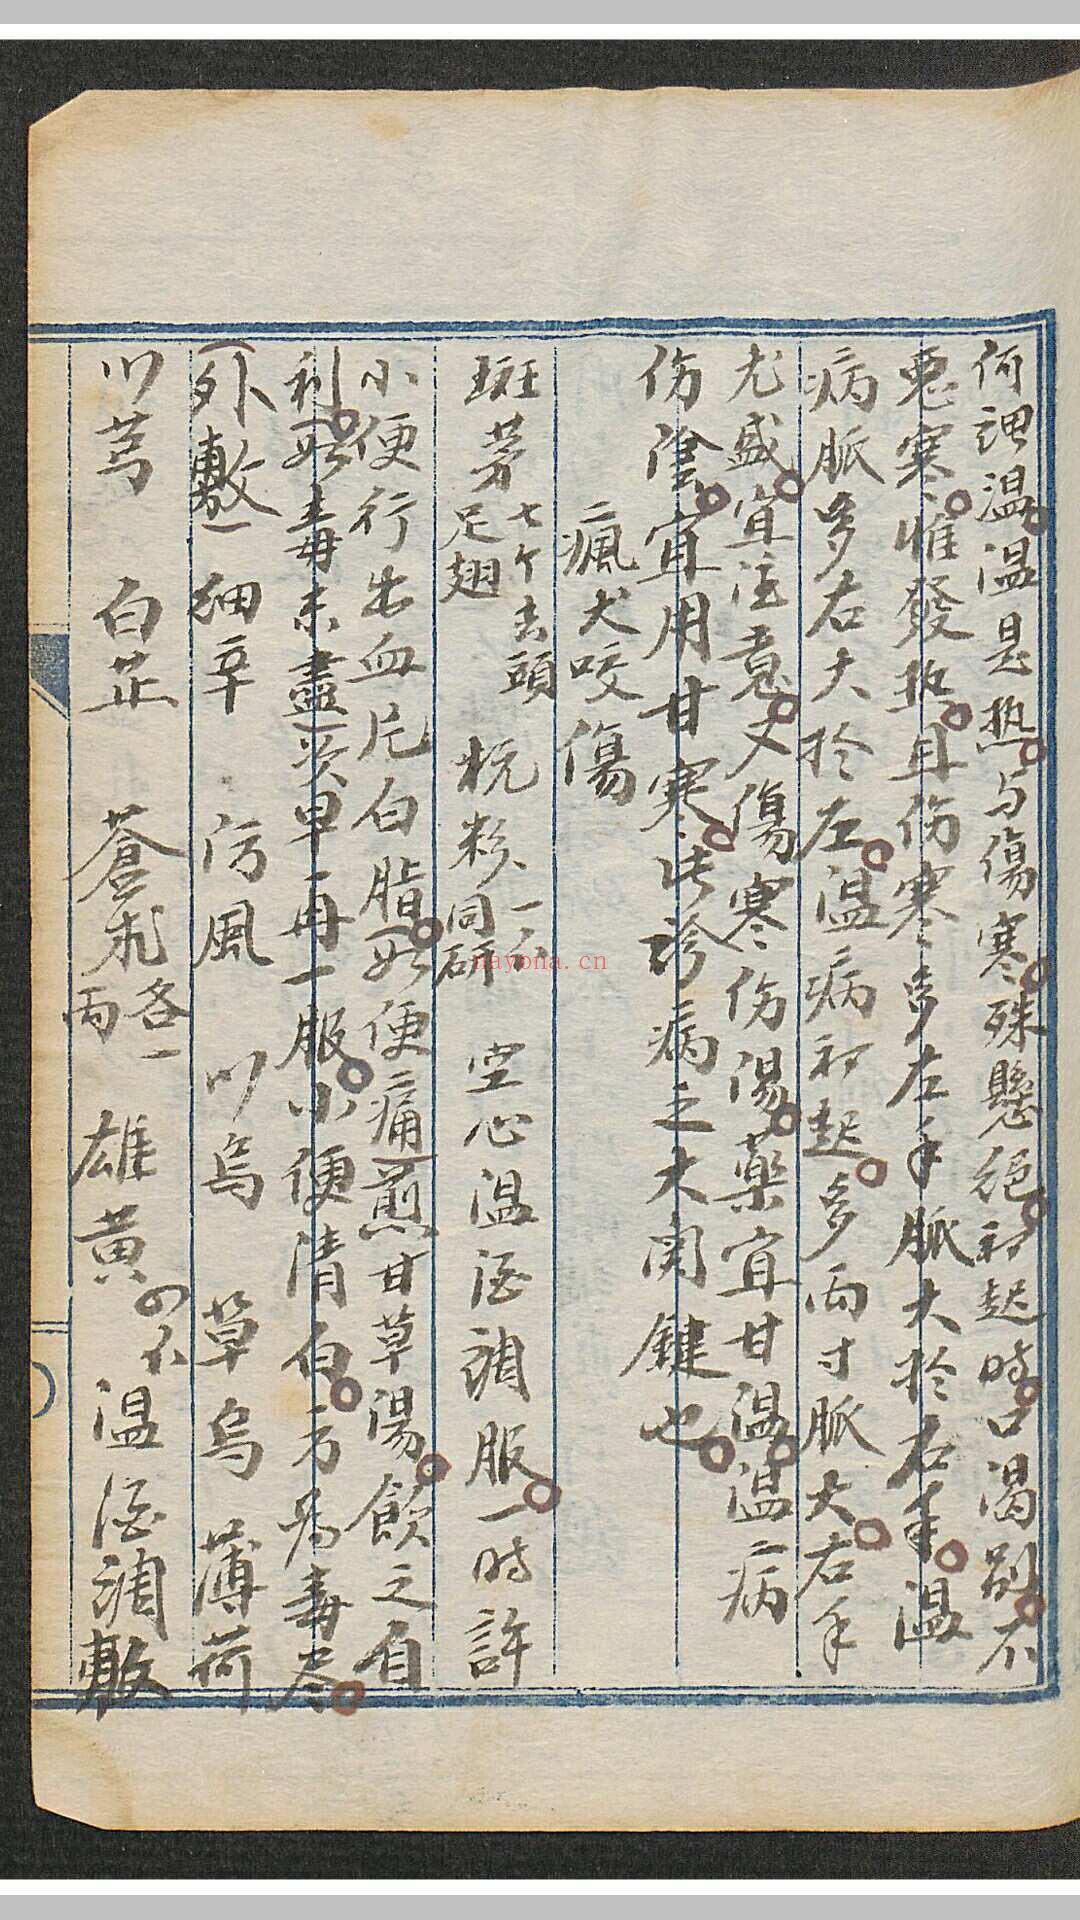 何謂温温是热与傷寒殊懸絕初起時口渴别不
恶寒惟發热且伤寒多左手脈大於右手温
病脈多右大於左温病初起多两寸脈大右手
尤盛宜注意又傷寒伤湯藥宜甘温温病
伤陰宜用甘寒此診病之大関鍵也
瘋犬咬傷
斑茅七个去頭足翅 杭粉一不同研 空心温酒調服一時許
小便行出血片白脂(如便痛)煎甘草湯飲之自
利(如毒未盡)次早再一服小便清白方为毒尽
(外敷)細辛 防风 川烏 草烏 薄荷
川芎 白芷 蒼朮各一両 雄黄四不 温酒調敷
nayona.cn